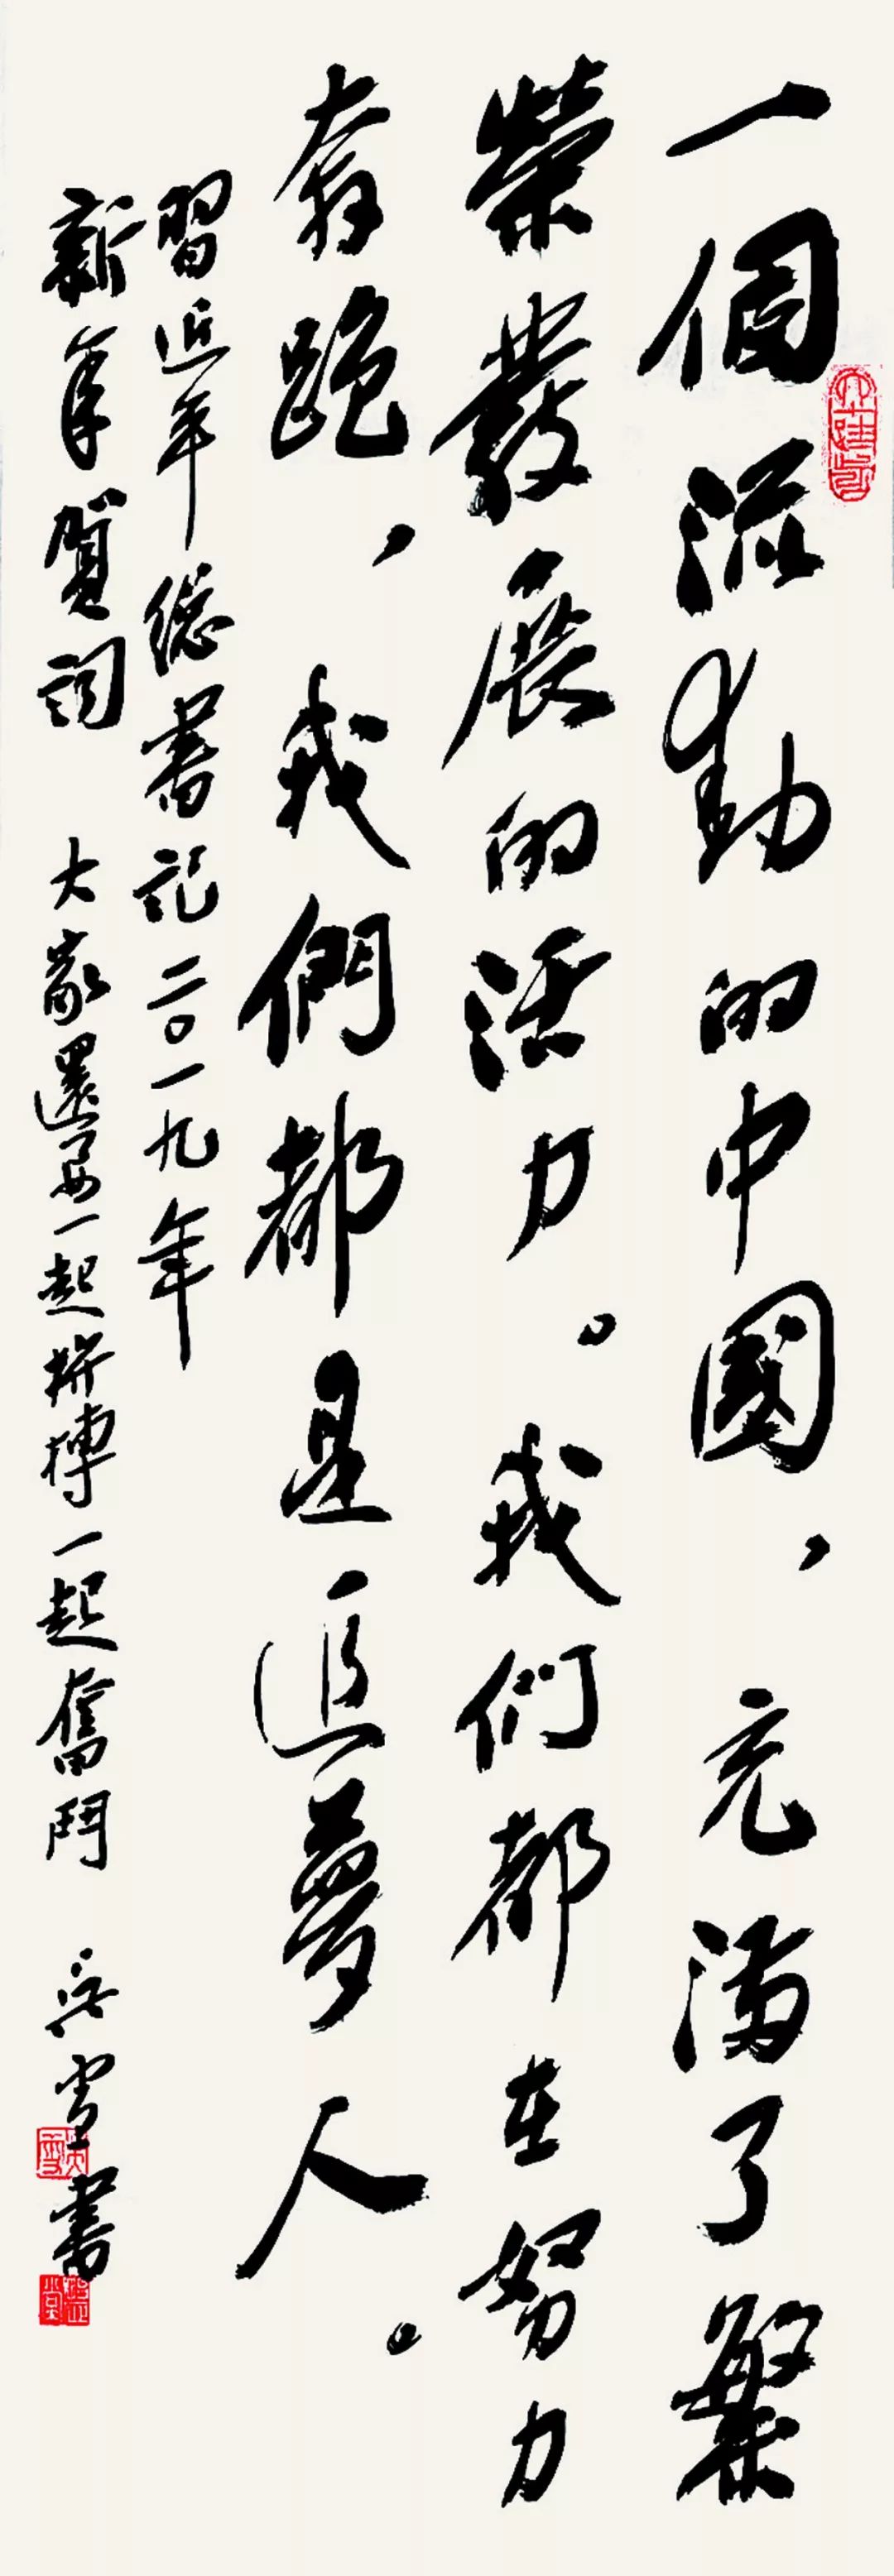 一個流動的中國，充滿了繁
榮發展的活力。我们都在努力
奔跑，我們都是追夢人。
習近平總書記二〇一九年
新年賀詞 大家還要一起拚搏一起奮鬥 吳雪書